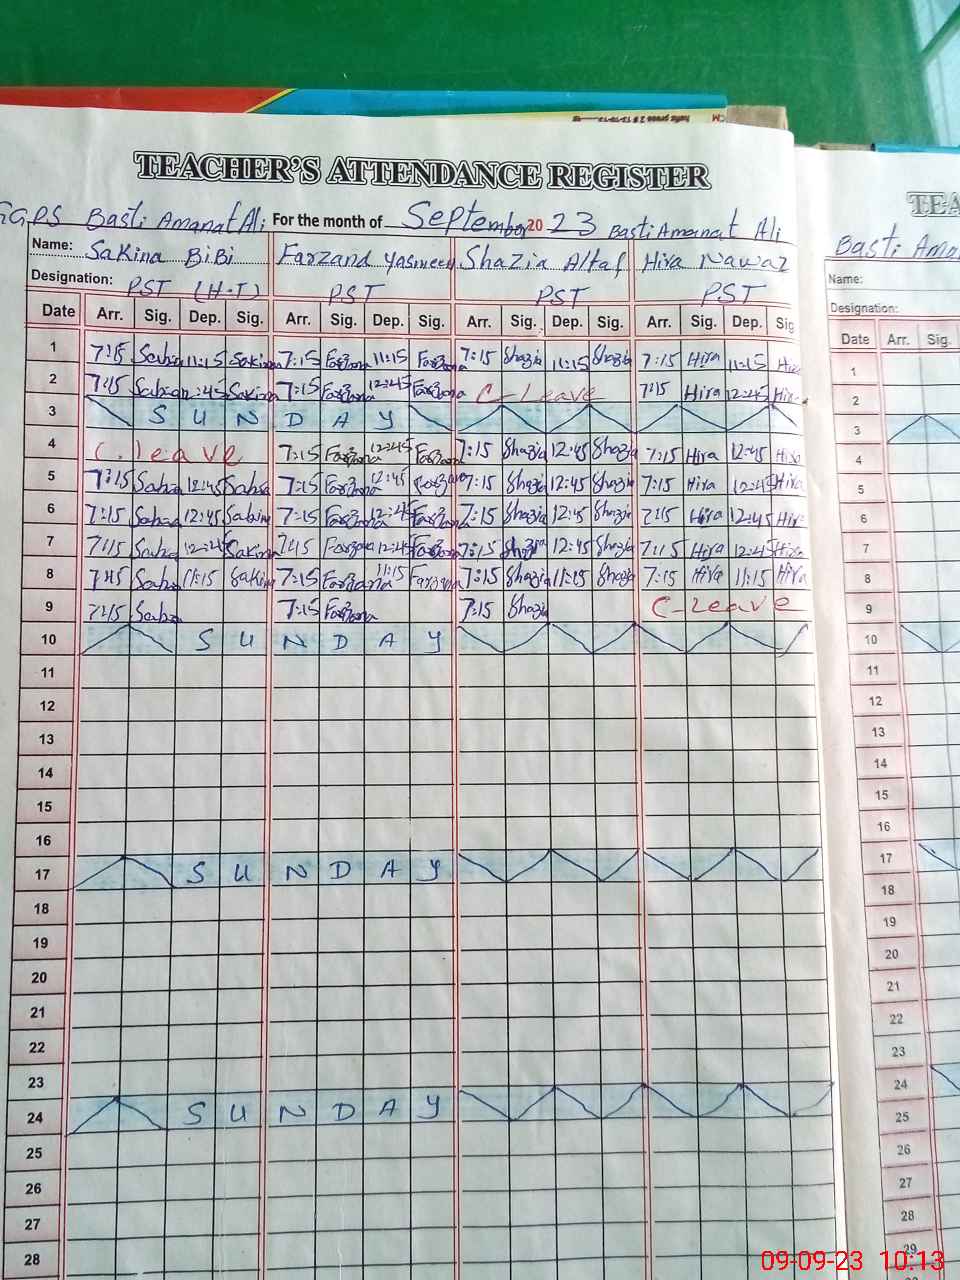 TEACHER'S ATTENDANCE REGISTER
GGPS Basti Amanat Ali For the month of September 2023 Basti Amanat Ali
Name: Sakina BiBi Farzana Yasmeen Shazia Altaf Hira Nawaz
Designation: PST (H.T) PST PST PST
Date Arr. Sig. Dep. Sig. Arr. Sig. Dep. Sig. Arr. Sig. Dep. Sig. Arr. Sig. Dep. Sig
1 7:15 11:15 Sakina 7:15 Farzana 11:15 Farzana 7:15 Shazia 11:15 Shazia 7:15 Hira 11:15 Hira
2 7:15 12:45 Sakina 7:15 Farzana 12:45 Farzana C-Leave 7:15 Hira 12:45 Hira
3 SUNDAY
4 C.leave 7:15 Farzana 12:45 Farzana 7:15 Shazia 12:45 Shazia 7:15 Hira 12:45 Hira
5 7:15 12:45 7:15 Farzana 12:45 Farzana 7:15 Shazia 12:45 Shazia 7:15 Hira 12:45 Hira
6 7:15 12:45 Sakina 7:15 Farzana 12:45 Farzana 7:15 Shazia 12:45 Shazia 7:15 Hira 12:45 Hira
7 7:15 12:45 Sakina 7:15 Farzana 12:45 Farzana 7:15 Shazia 12:45 Shazia 7:15 Hira 12:45 Hira
8 7:15 11:15 Sakina 7:15 Farzana 11:15 Farzana 7:15 Shazia 11:15 Shazia 7:15 Hira 11:15 Hira
9 7:15 7:15 Farzana 7:15 Shazia C-Leave
10 SUNDAY
11
12
13
14
15
16
17 SUNDAY
18
19
20
21
22
23
24 SUNDAY
25
26
27
28
TEA
Basti Ama
Name:
Designation:
Date Arr. Sig.
1
2
3
4
5
6
7
8
9
10
11
12
13
14
15
16
17
18
19
20
21
22
23
24
25
26
27
28
29
09-09-23 10:13